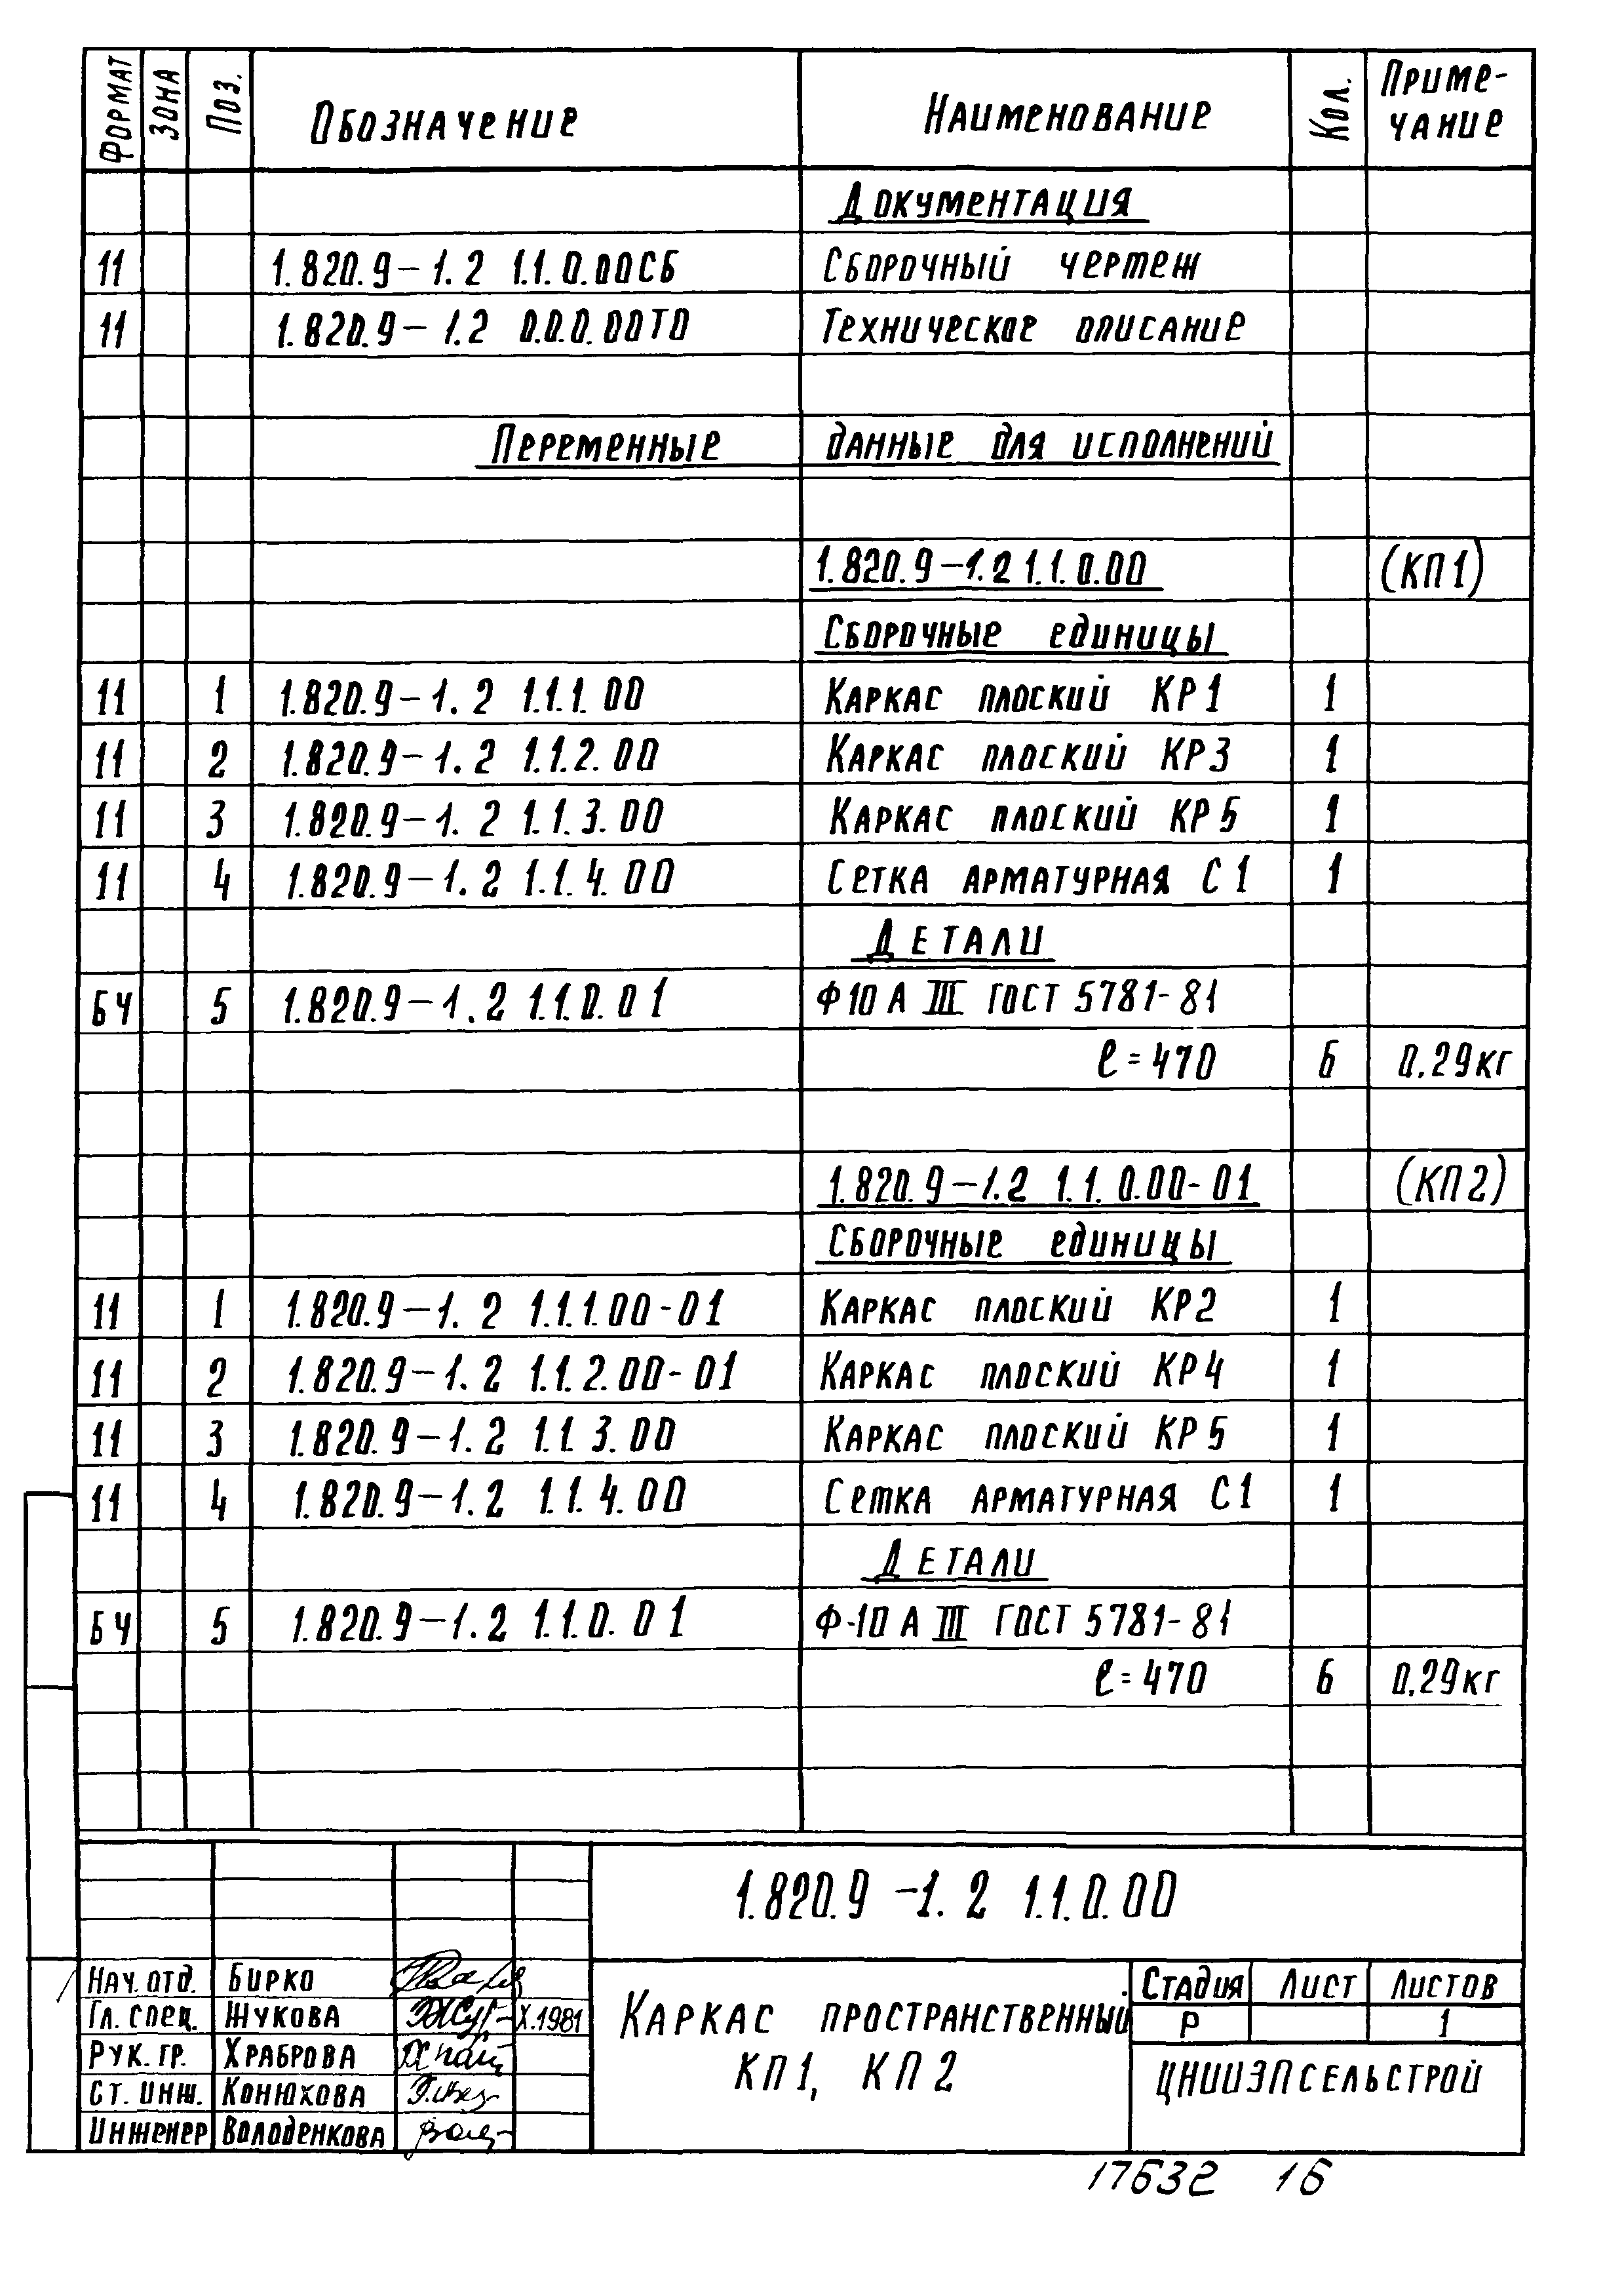 Формат Зона Поз. Обозначение Наименование Кол. Приме-
чание
Документация
11 1.820.9-1.2 1.1.0.00СБ Сборочный чертеж
11 1.820.9-1.2 0.0.0.00ТО Техническое описание
Переменные данные для исполнений
1.820.9-1.2 1.1.0.00 (КП1)
Сборочные единицы
11 1 1.820.9-1.2 1.1.1.00 Каркас плоский КР1 1
11 2 1.820.9-1.2 1.1.2.00 Каркас плоский КР3 1
11 3 1.820.9-1.2 1.1.3.00 Каркас плоский КР5 1
11 4 1.820.9-1.2 1.1.4.00 Сетка арматурная С1 1
Детали
БЧ 5 1.820.9-1.2 1.1.0.01 Ф10 А III ГОСТ 5781-81
ℓ=470 6 0.29кг
1.820.9-1.2 1.1.0.00-01 (КП2)
Сборочные единицы
11 1 1.820.9-1.2 1.1.1.00-01 Каркас плоский КР2 1
11 2 1.820.9-1.2 1.1.2.00-01 Каркас плоский КР4 1
11 3 1.820.9-1.2 1.1.3.00 Каркас плоский КР5 1
11 4 1.820.9-1.2 1.1.4.00 Сетка арматурная С1 1
Детали
БЧ 5 1.820.9-1.2 1.1.0.01 Ф-10 А III ГОСТ 5781-81
ℓ=470 6 0.29кг
1.820.9-1.2 1.1.0.00
Нач. отд. Бирко
Гл. спец. Жукова X.1981
Рук. гр. Храброва
Ст. инж. Конюхова
Инженер Володенкова
Каркас пространственный
КП1, КП2
Стадия Лист Листов
Р 1
ЦНИИЭПсельстрой
17632 16